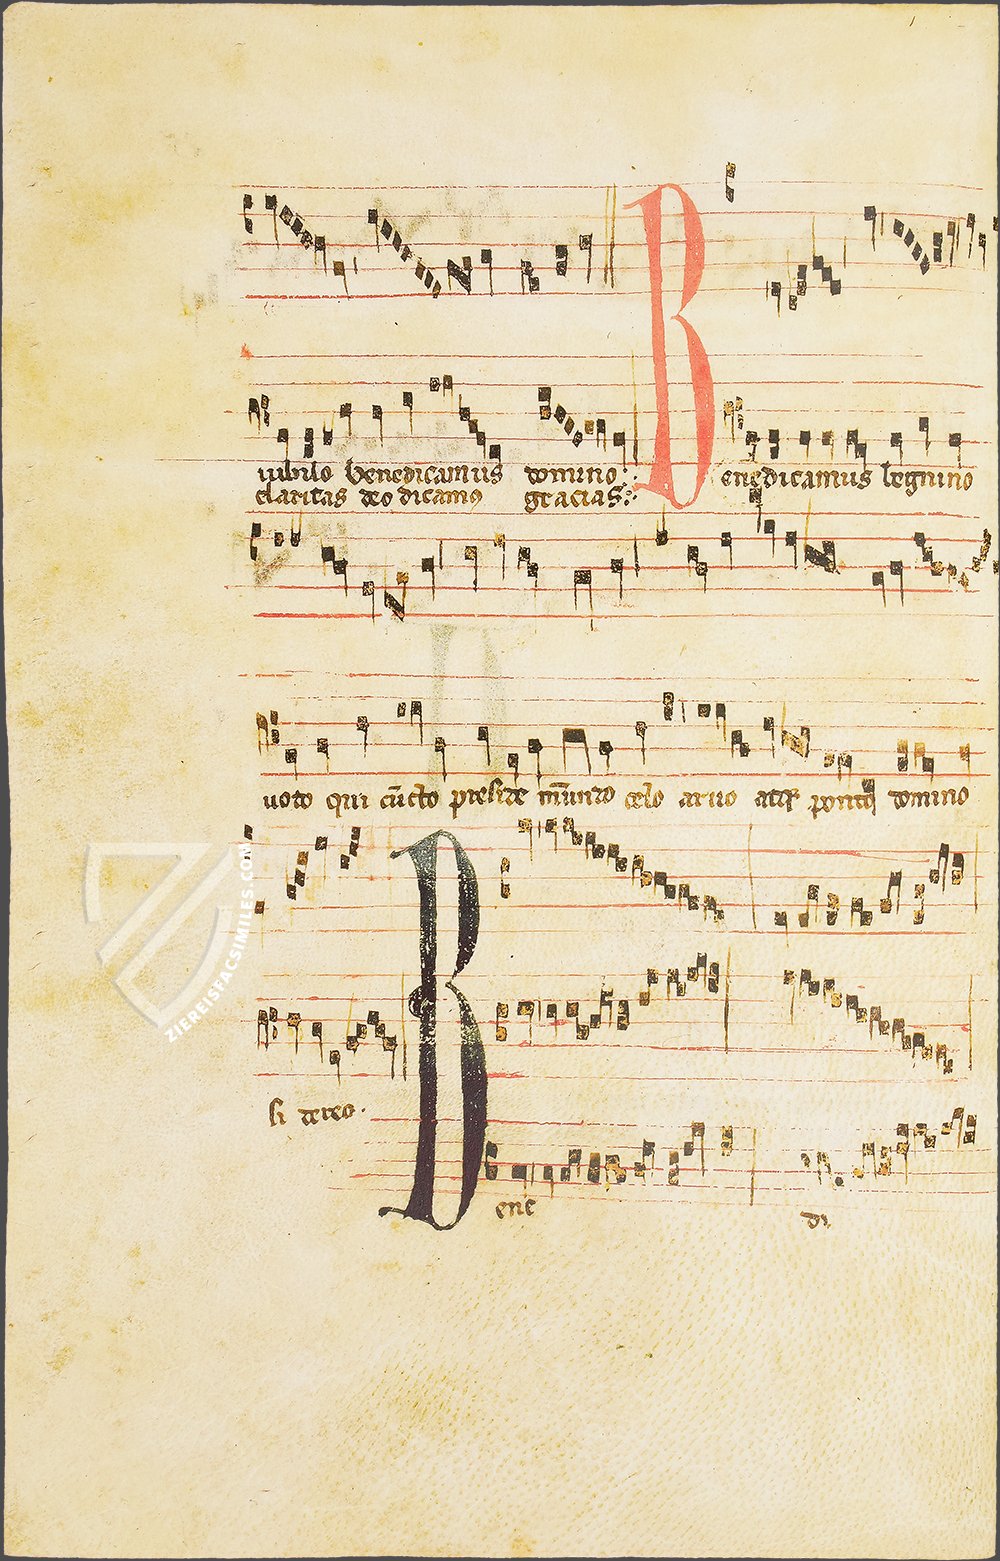 B
iubilo benedicamus domino
enedicamus
claritas deo dicamus gracias
uoto qui cūcto preside mundo celo aruo atq ponto domino
si dereo
B
ene di
ZIEREISFACSIMILES.COM